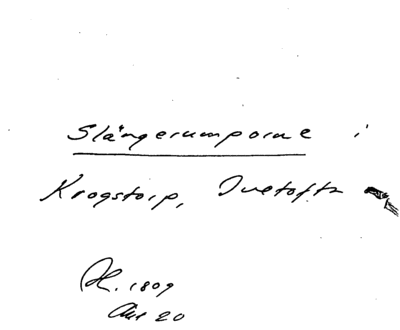 Slängerumporne i
Krogstorp, Duetofta
H. 1809
20